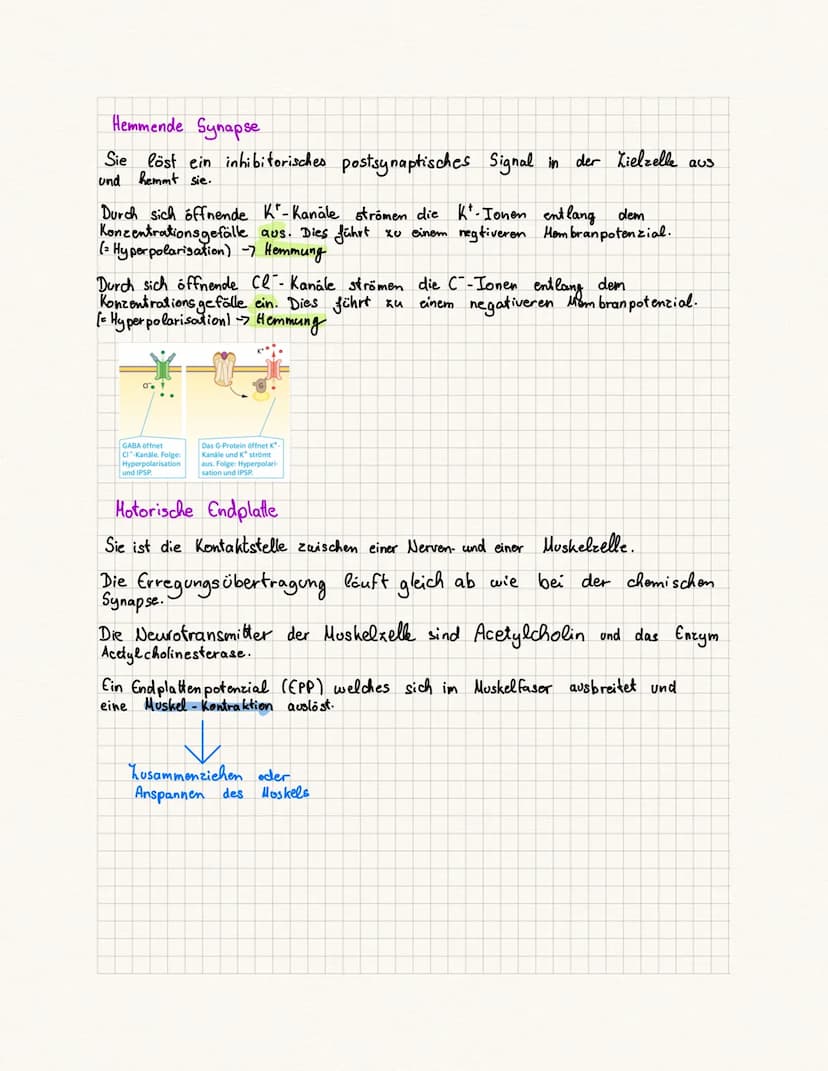 Hemmende Synapse
Sie löst ein inhibitorisches postsynaptisches Signal in der Zielzelle aus
und hemmt sie.
Durch sich öffnende K⁺-Kanäle strömen die K⁺-Ionen entlang dem
Konzentrationsgefälle aus. Dies führt zu einem negtiveren Membranpotenzial.
(= Hyperpolarisation) → Hemmung
Durch sich öffnende Cl⁻-Kanäle strömen die C⁻-Ionen entlang dem
Konzentrationsgefälle ein. Dies führt zu einem negativeren Membranpotenzial.
(= Hyperpolarisation) → Hemmung
K⁺
G
GABA öffnet
Cl⁻-Kanäle. Folge:
Hyperpolarisation
und IPSP.
Das G-Protein öffnet K⁺-
Kanäle und K⁺ strömt
aus. Folge: Hyperpolari-
sation und IPSP.
Motorische Endplatte
Sie ist die Kontaktstelle zwischen einer Nerven- und einer Muskelzelle.
Die Erregungsübertragung läuft gleich ab wie bei der chemischen
Synapse.
Die Neurotransmitter der Muskelzelle sind Acetylcholin und das Enzym
Acetylcholinesterase.
Ein Endplattenpotenzial (EPP) welches sich im Muskelfaser ausbreitet und
eine Muskel-Kontraktion auslöst.
Zusammenziehen oder
Anspannen des Muskels